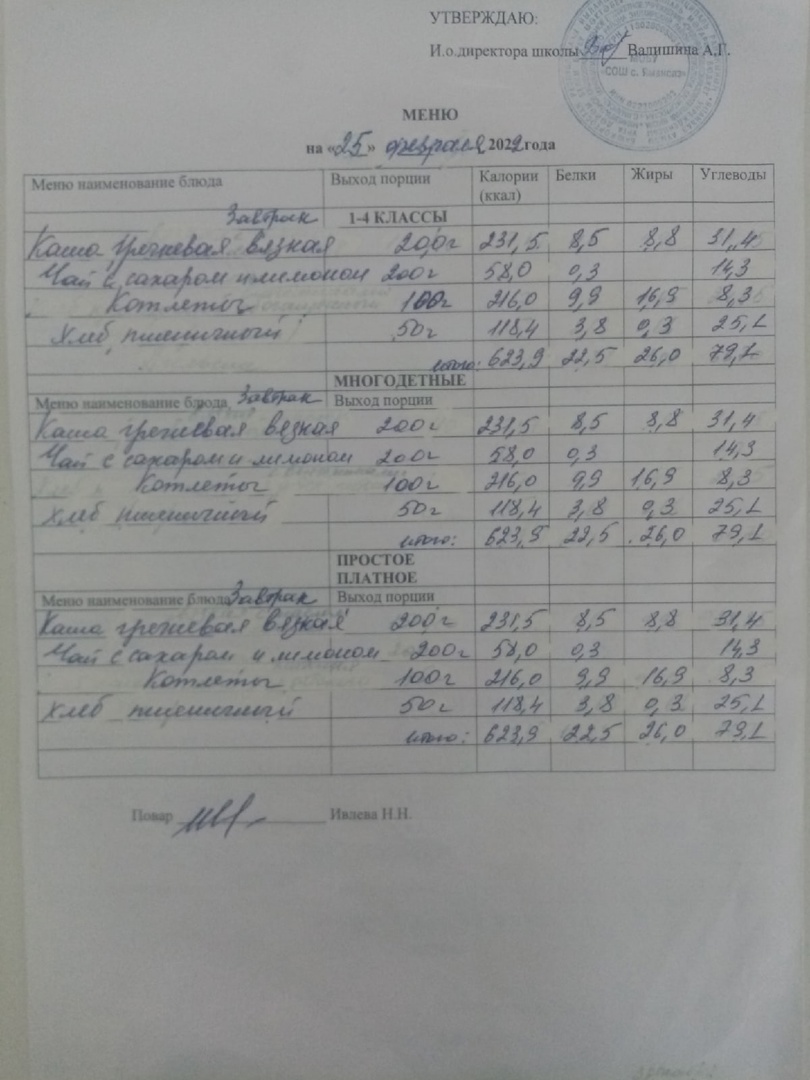 УТВЕРЖДАЮ:
И.о.директора школы Валишина А.Г.
МОБУ
«СОШ с. Ямансаз»
МЕНЮ
на «25» февраля 2022 года
Меню наименование блюда Выход порции Калории (ккал) Белки Жиры Углеводы
Завтрак 1-4 КЛАССЫ
Каша гречневая вязкая 200г 231,5 8,5 8,8 31,4
Чай с сахаром и лимоном 200г 58,0 0,3 14,3
Котлеты 100г 216,0 9,9 16,9 8,3
Хлеб пшеничный 50г 118,4 3,8 0,3 25,1
итого: 623,9 22,5 26,0 79,1
МНОГОДЕТНЫЕ
Меню наименование блюда Завтрак Выход порции
Каша гречневая вязкая 200г 231,5 8,5 8,8 31,4
Чай с сахаром и лимоном 200г 58,0 0,3 14,3
Котлеты 100г 216,0 9,9 16,9 8,3
Хлеб пшеничный 50г 118,4 3,8 0,3 25,1
итого: 623,9 22,5 26,0 79,1
ПРОСТОЕ
ПЛАТНОЕ
Меню наименование блюда Завтрак Выход порции
Каша гречневая вязкая 200г 231,5 8,5 8,8 31,4
Чай с сахаром и лимоном 200г 58,0 0,3 14,3
Котлеты 100г 216,0 9,9 16,9 8,3
Хлеб пшеничный 50г 118,4 3,8 0,3 25,1
итого: 623,9 22,5 26,0 79,1
Повар Ивлева Н.Н.